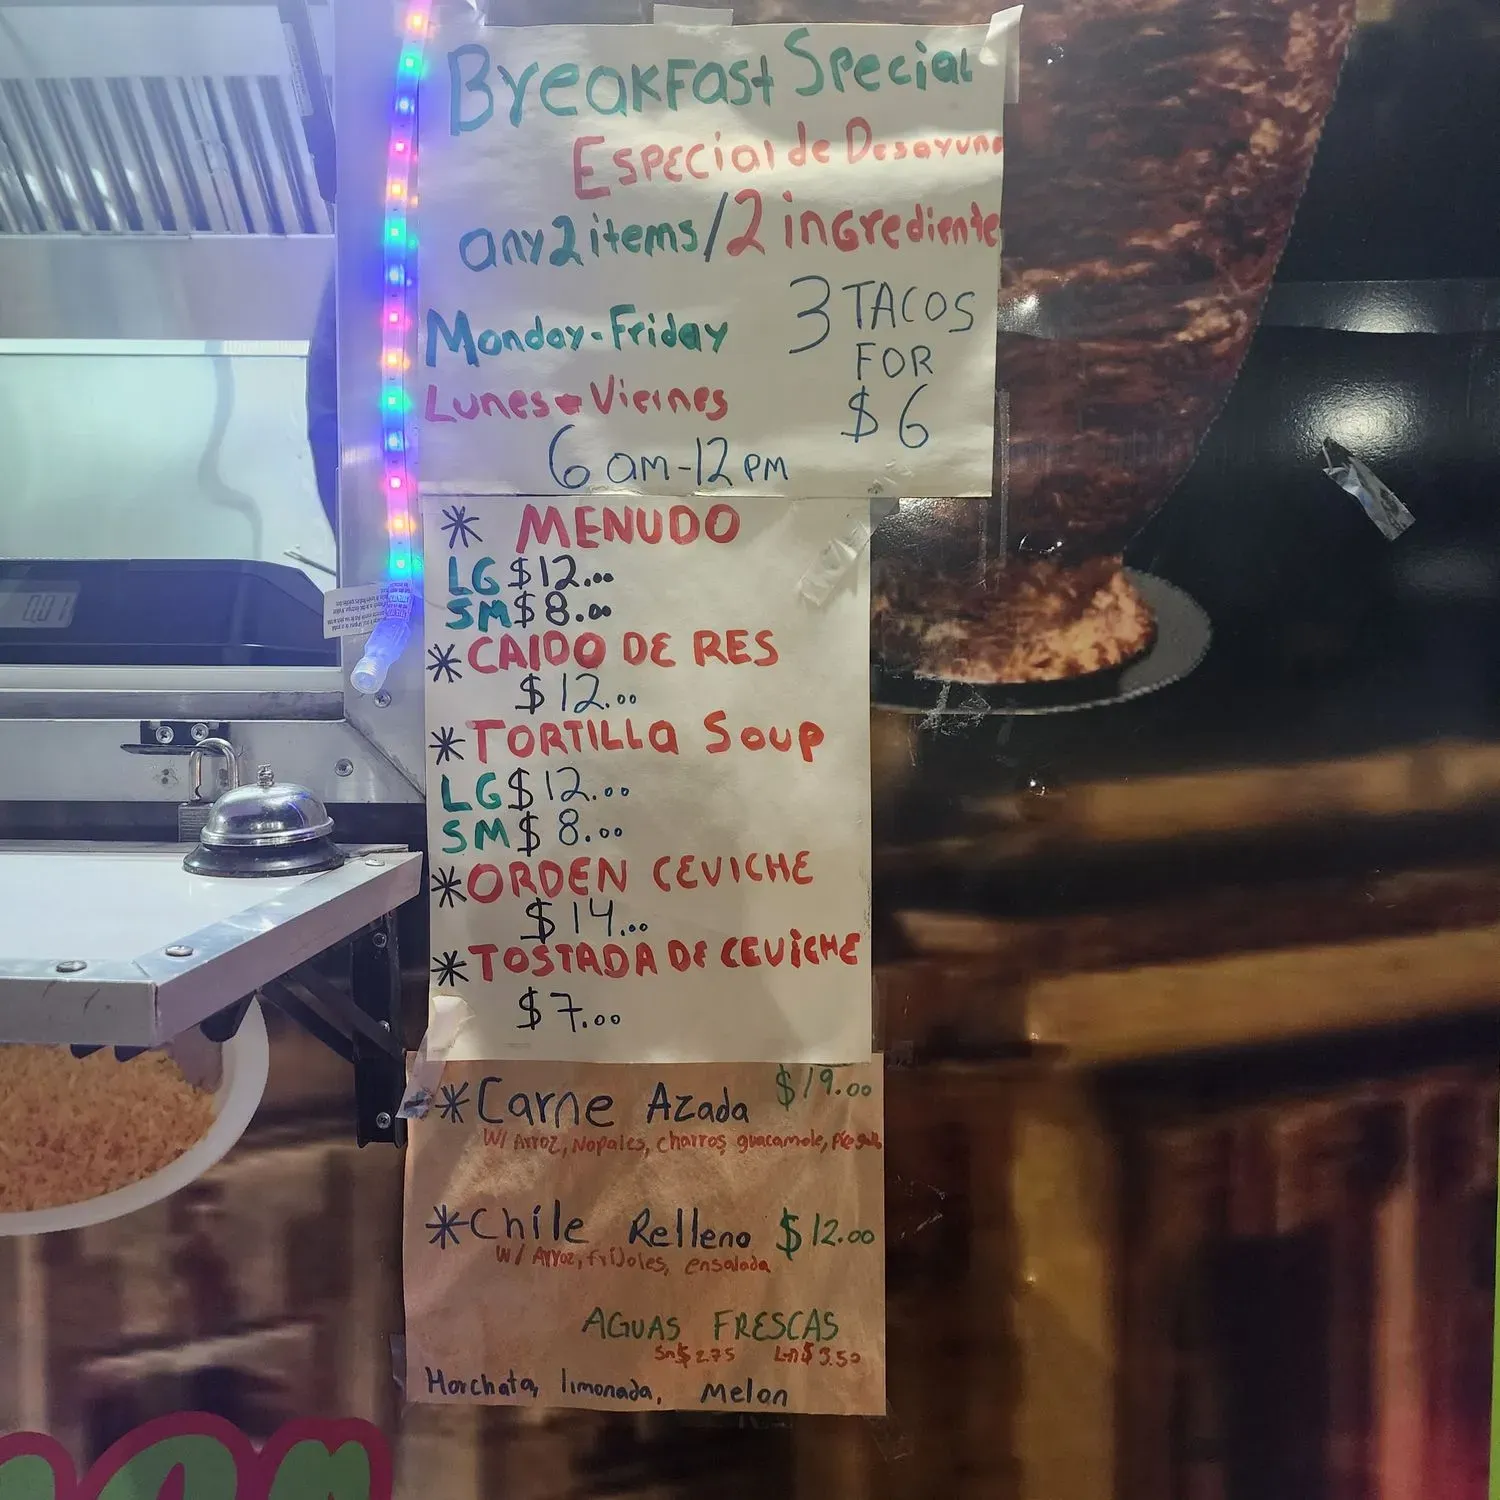 Breakfast Special
Especial de Desayuno
any 2 items / 2 ingrediente
Monday - Friday
Lunes - Viernes
6 am - 12 pm
3 TACOS
FOR
$6
* MENUDO
LG $12.00
SM $8.00
* CAIDO DE RES
$12.00
* TORTILLA Soup
LG $12.00
SM $8.00
* ORDEN CEVICHE
$14.00
* TOSTADA DE CEVICHE
$7.00
* Carne Azada $19.00
W/ Arroz, Nopales, charros, guacamole,
* Chile Relleno $12.00
W/ Arroz, frijoles, ensalada
AGUAS FRESCAS
Sm $2.75 Lm $3.50
Horchata, limonada, Melon
0.01